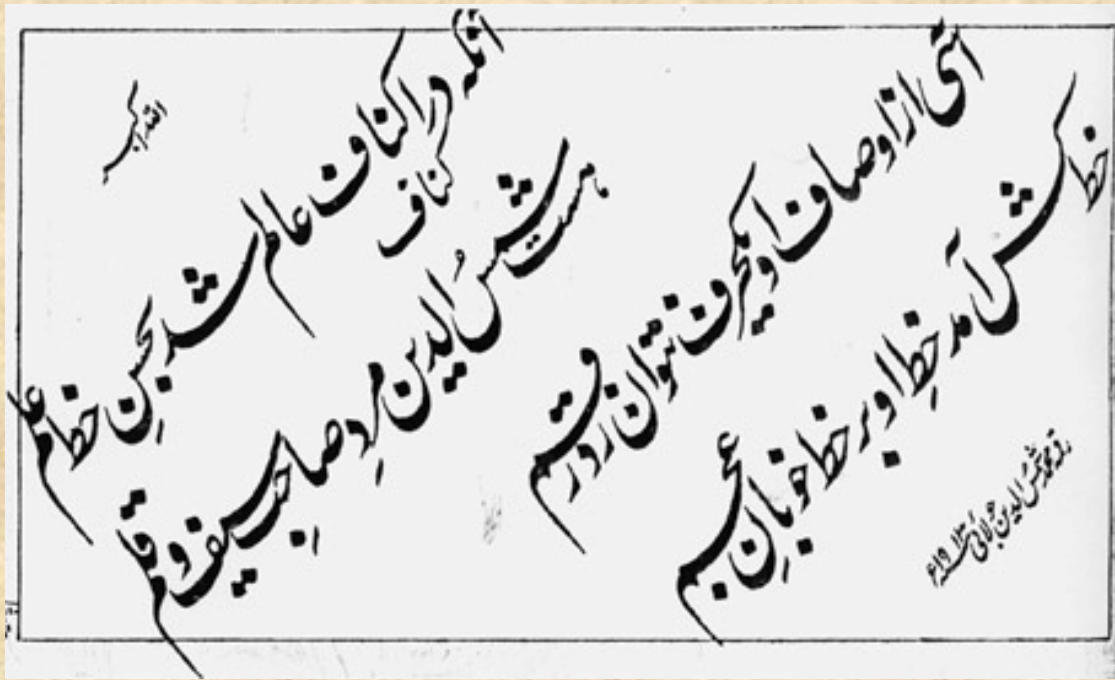 اللہ اکبر
آنکہ در اکناف عالم شد بحسنِ خط علم
کناف
ہست شمسُ الدین مردِ صاحبِ سیف و قلم
آسی از اوصاف او یکحرف نتوان زد رقم
خط کشش آمد خطِ او بر خط خوبانِ عجم
محمد شمس الدین جولائی